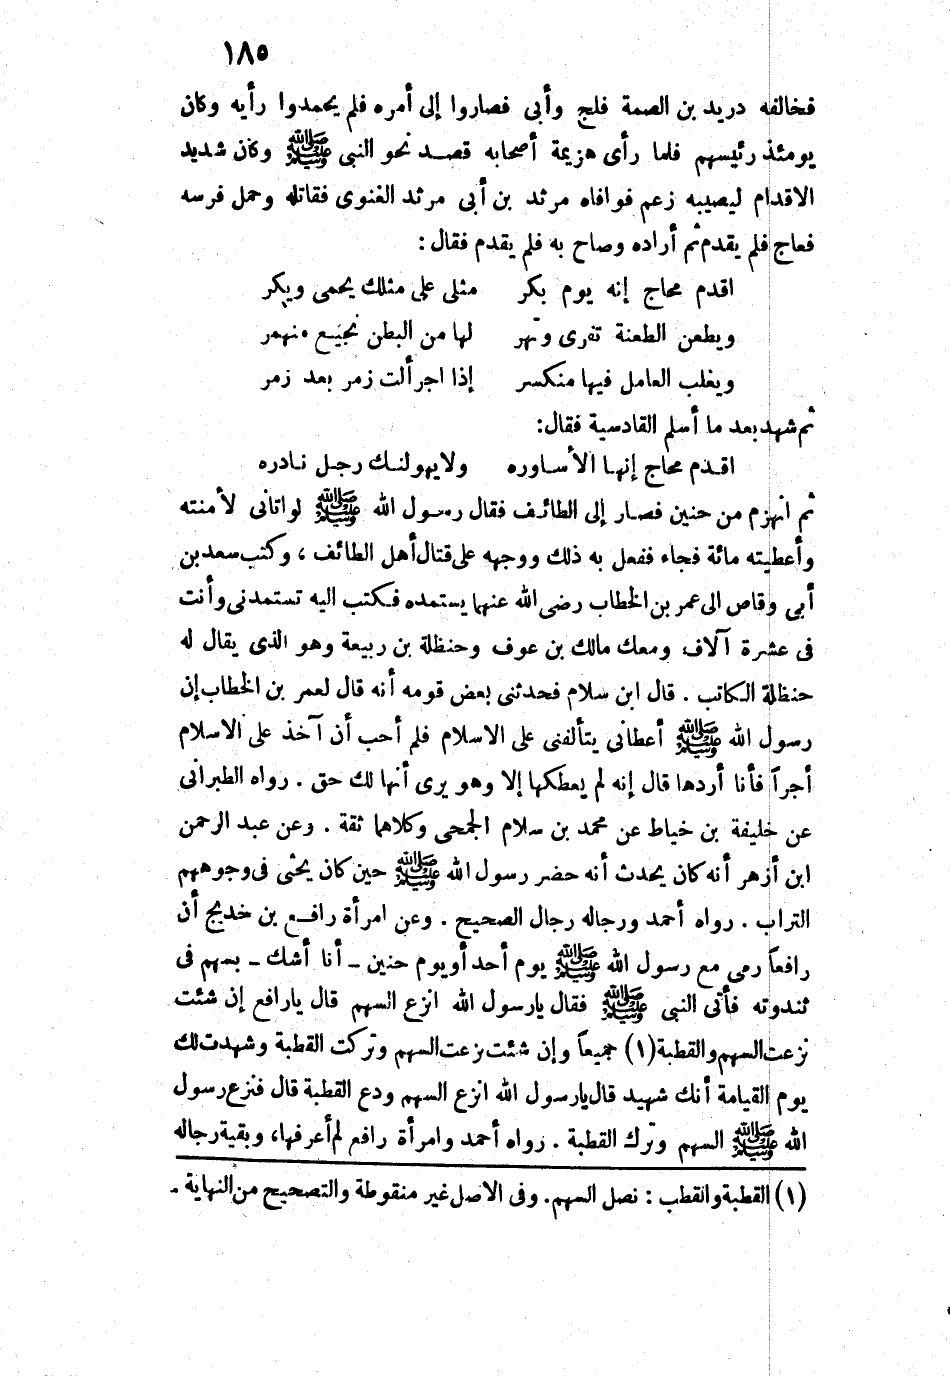 ١٨٥
فخالفه دريد بن الصمة فلج وأبى فصاروا إلى أمره فلم يحمدوا رأيه وكان
يومئذ رئيسهم فلما رأى هزيمة أصحابه قصد نحو النبي ﷺ وكان شديد
الاقدام ليصيبه زعم فوافاه مرثد بن أبى مرثد الغنوى فقاتله وحمل فرسه
فعاج فلم يقدم ثم أراده وصاح به فلم يقدم فقال :
اقدم محاج إنه يوم بكر مثلى على مثلك يحمى ويكر
ويطعن الطعنة تفرى وتهر لها من البطن نجيع منهمر
ويغلب العامل فيها منكسر إذا اجرألت زمر بعد زمر
ثم شهد بعد ما أسلم القادسية فقال:
اقدم محاج إنها الأساوره ولا يهولنك رجل نادره
ثم انهزم من حنين فصار إلى الطائف فقال رسول الله ﷺ لو اتانى لأمنته
وأعطيته مائة فجاء ففعل به ذلك ووجهه على قتال أهل الطائف ، وكتب سعد بن
أبى وقاص الى عمر بن الخطاب رضى الله عنهما يستمده فكتب اليه تستمدنى وأنت
فى عشرة آلاف ومعك مالك بن عوف وحنظلة بن ربيعة وهو الذى يقال له
حنظلة الكاتب . قال ابن سلام فحدثنى بعض قومه أنه قال لعمر بن الخطاب إن
رسول الله ﷺ أعطانى يتألفنى على الاسلام فلم أحب أن آخذ على الاسلام
أجراً فأنا أردها قال إنه لم يعطكها إلا وهو يرى أنها لك حق . رواه الطبرانى
عن خليفة بن خياط عن محمد بن سلام الجمحى وكلاهما ثقة . وعن عبد الرحمن
ابن أزهر أنه كان يحدث أنه حضر رسول الله ﷺ حين كان يحثى فى وجوههم
التراب . رواه أحمد ورجاله رجال الصحيح . وعن امرأة رافع بن خديج أن
رافعاً رمى مع رسول الله ﷺ يوم أحد أو يوم حنين - أنا أشك - بسهم فى
ثندوته فأتى النبى ﷺ فقال يارسول الله انزع السهم قال يارافع إن شئت
نزعت السهم والقطبة (١) جميعاً وإن شئت نزعت السهم وتركت القطبة وشهدت لك
يوم القيامة أنك شهيد قال يارسول الله انزع السهم ودع القطبة قال فنزع رسول
الله ﷺ السهم وترك القطبة . رواه أحمد وامرأة رافع لم أعرفها، وبقية رجاله
(١) القطبة والقطب : نصل السهم. وفى الاصل غير منقوطة والتصحيح من النهاية .